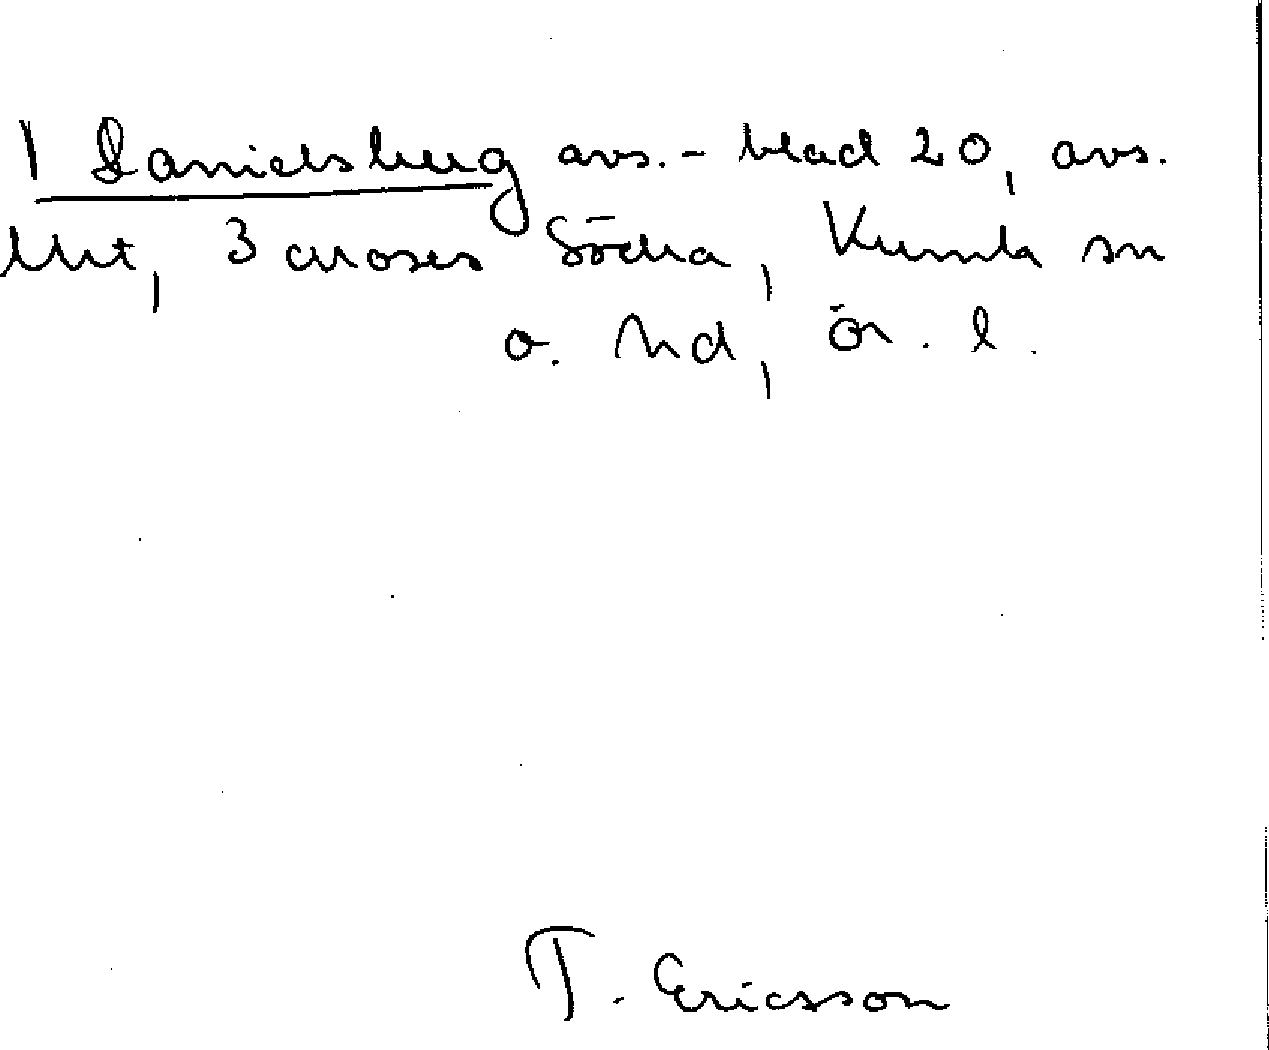 1 Danielsberg avs. - blad 20, avs.
utt, 3 Södra, Kumla sn
o. hd, Ör. l.
T. Ericsson